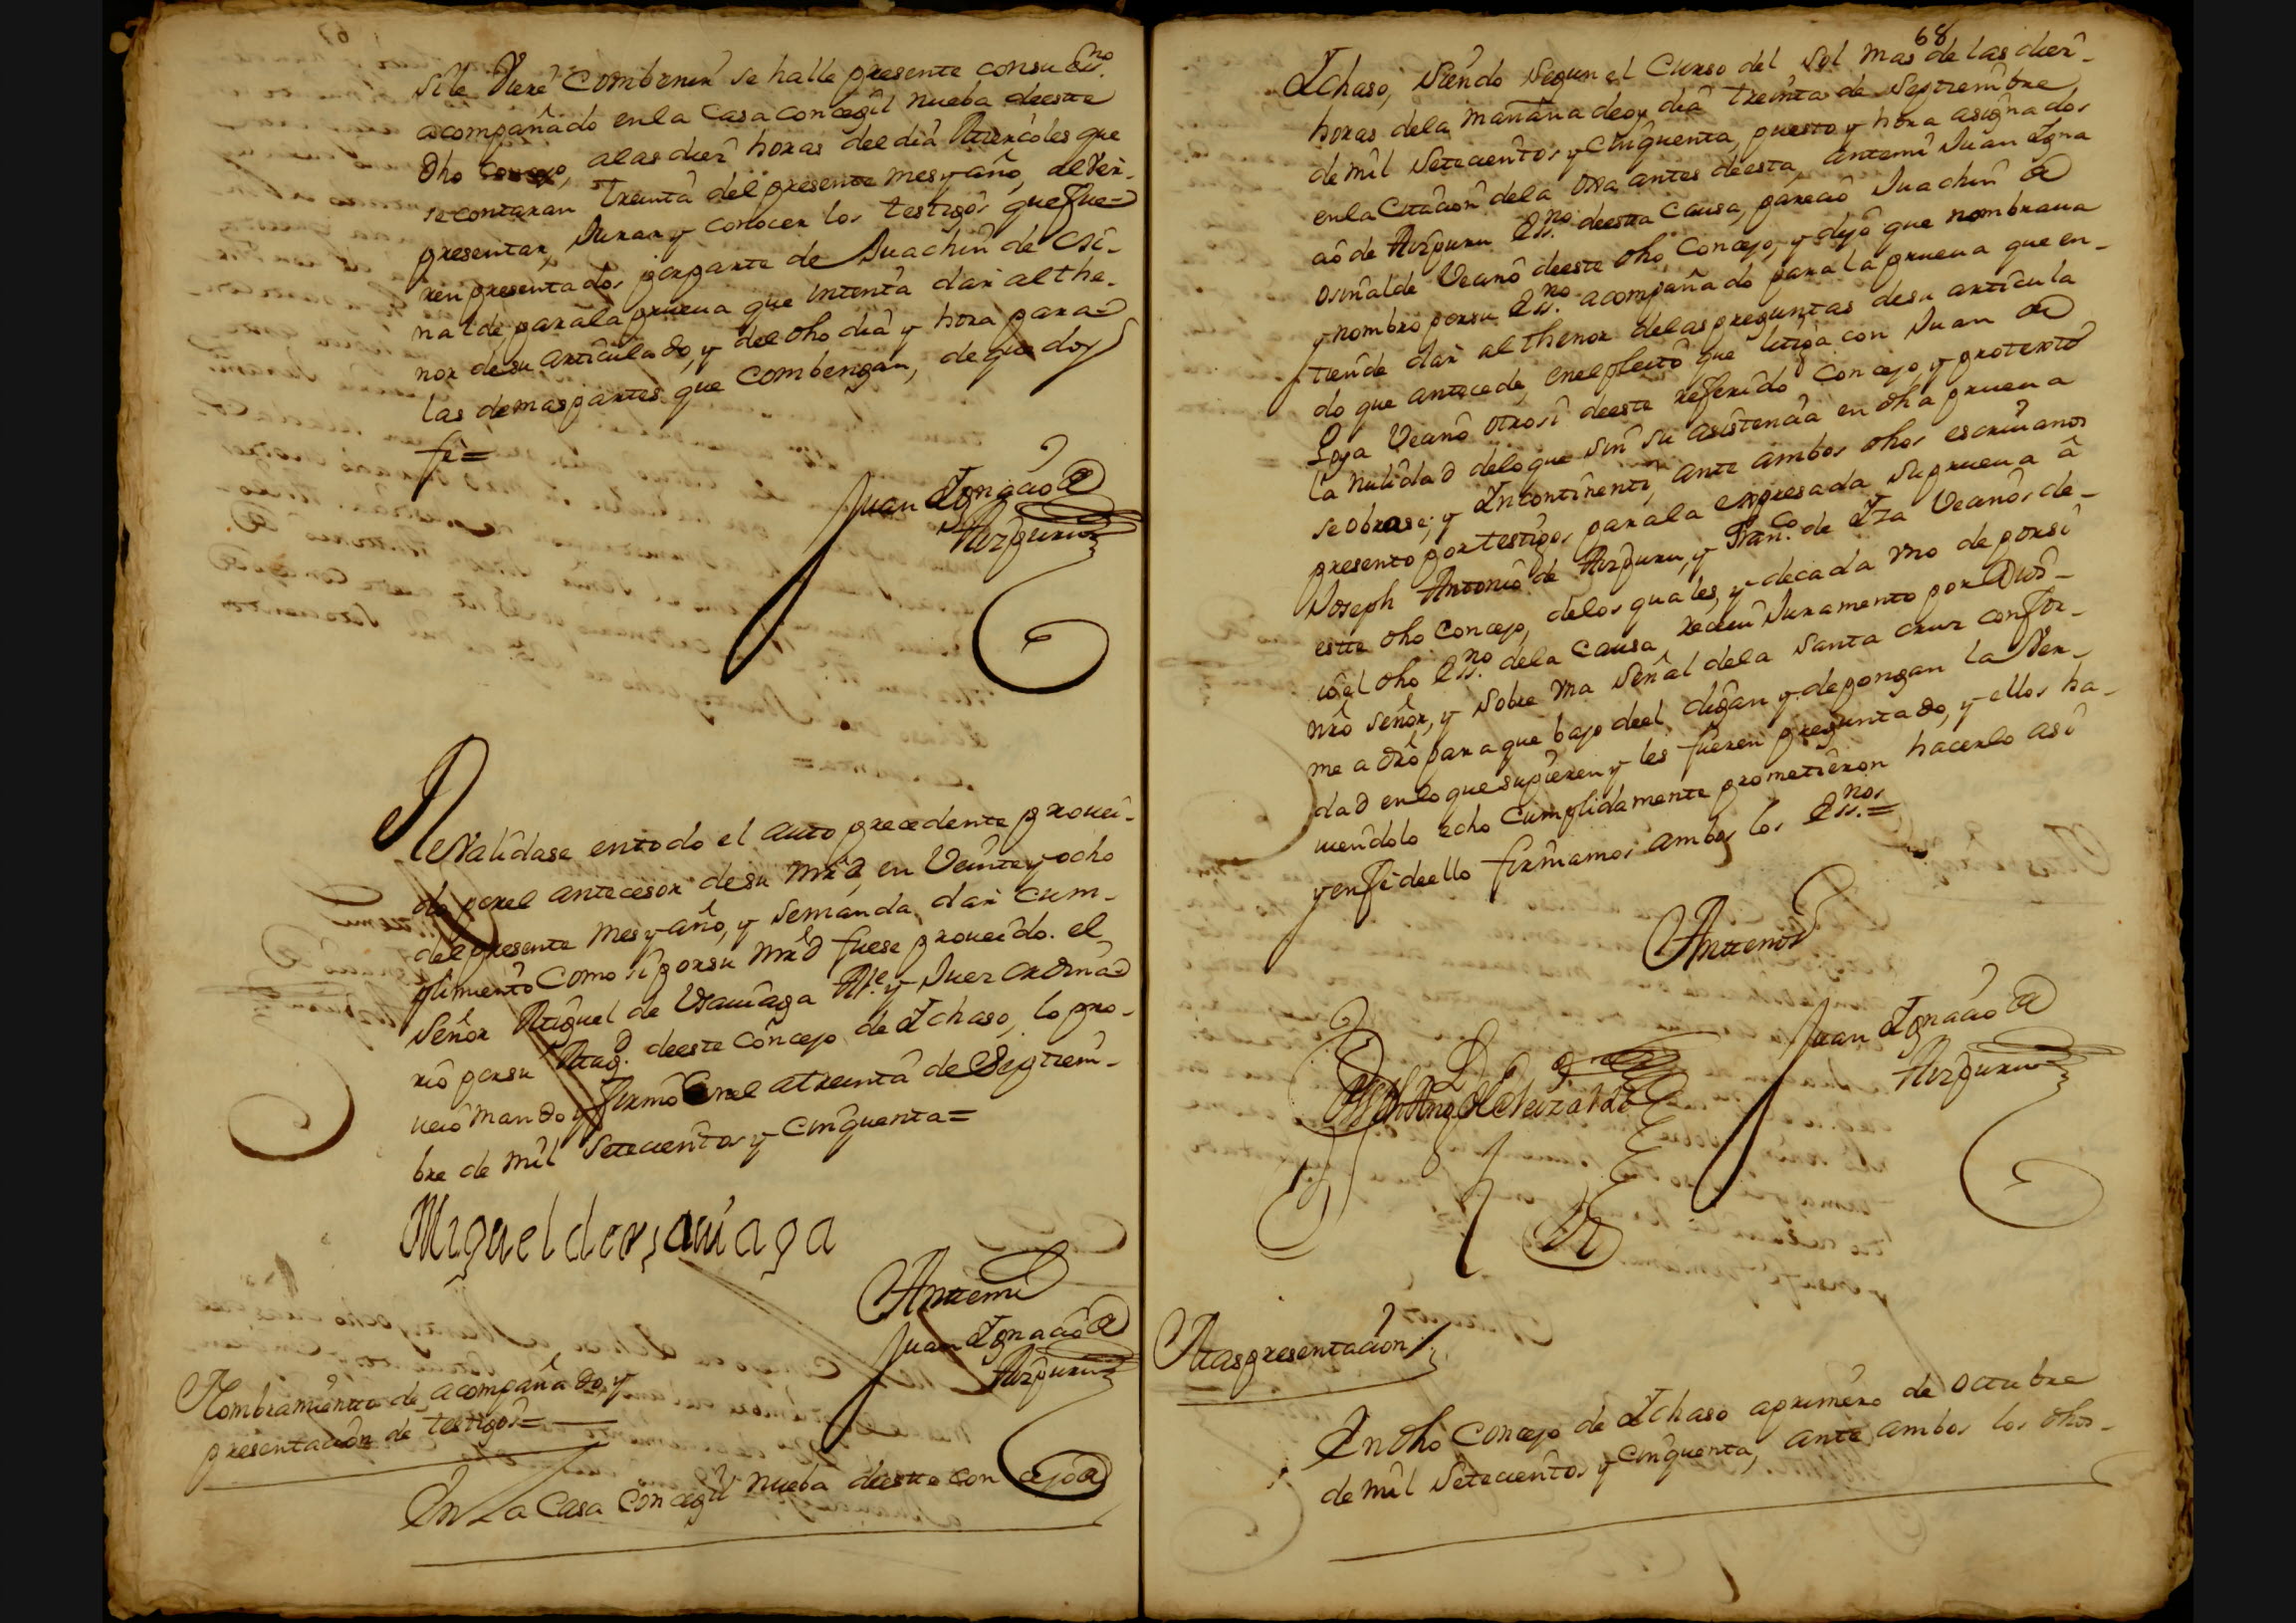 si le Viere Combenir se halle presente con su Ess.no
acompañado en la Casa concegil nueba de este
dho Concejo, a las diez horas del dia Miercoles que
se contaran treinta del presente mes y año, al Ver
presentar, Jurar y conocer los testigos que fue=
ren presentados por parte de Juachin de Osi-
nalde, para la prueua que intenta dar al the-
nor de su articulado, y del dho dia y hora para=
las demas partes que combengan, de que doy
fe=
Juan Ignacio de
Aizpuru
Revalidase en todo el auto precedente prouei-
do por el antecesor de su mrd, en Veinte y ocho
del presente mes y año, y se manda dar cum-
plimiento como si por su mrd fuese proueido. el
Señor Miguel de Vsauiaga Al.e y Juez ordina=
rio por su Mag.d de este Concejo de Ichaso, lo pro-
ueio mando y firmo en el a treinta de Septiem-
bre de mil Setecientos y cinquenta=
Miguel de vsauiaga
Ante mi
Juan Ignacio de
Aizpuru
Nombramiento de acompañado, y
presentacion de testigos=
En La Casa Concegil nueba de este Concejo de
68
Ichaso, siendo segun el Curso del Sol mas de las diez
horas de la mañana de oy dia treinta de Septiembre
de mil Setecientos y Cinquenta, puesto y hora asignados
en la Citacion de la otra antes de esta, ante mi Juan Igna
cio de Aizpuru Ess.no de esta Causa, parecio Juachin de
Osinalde Vecino de este dho Concejo, y dijo que nombraua
y nombro por su Ess.no acompañado para la prueua que en-
tiende dar al thenor de las preguntas de su articula
do que antecede, en el pleito que litiga con Juan de
Loya Vecino otrosi de este referido Concejo, y protesto
la nulidad de lo que sin su asistencia en dha prueua
se obrase; y Incontinenti, ante ambos dhos escriuanos
presento por testigos, para la expresada su prueua â
Joseph Antonio de Aizpuru, y Fran.co de Iza Vecinos de-
este dho Concejo, de los quales, y de cada vno de por si
io el dho Ess.no de la Causa reciui Juramento por Dios-
nro señor, y sobre vna Señal de la Santa cruz confor-
me a dro para que bajo de el digan y depongan la Ver-
dad en lo que supieren y les fueren preguntado, y ellos ha-
uiendolo echo Cumplidamente prometieron hacerlo asi
y en fe de ello firmamos ambos los Ess.nos=
Ante nos
Juan Ignacio de
Aizpuru
Mas presentacion
En dho Concejo de Ichaso a primero de octubre
de mil Setecientos y cinquenta, ante ambos los dhos-